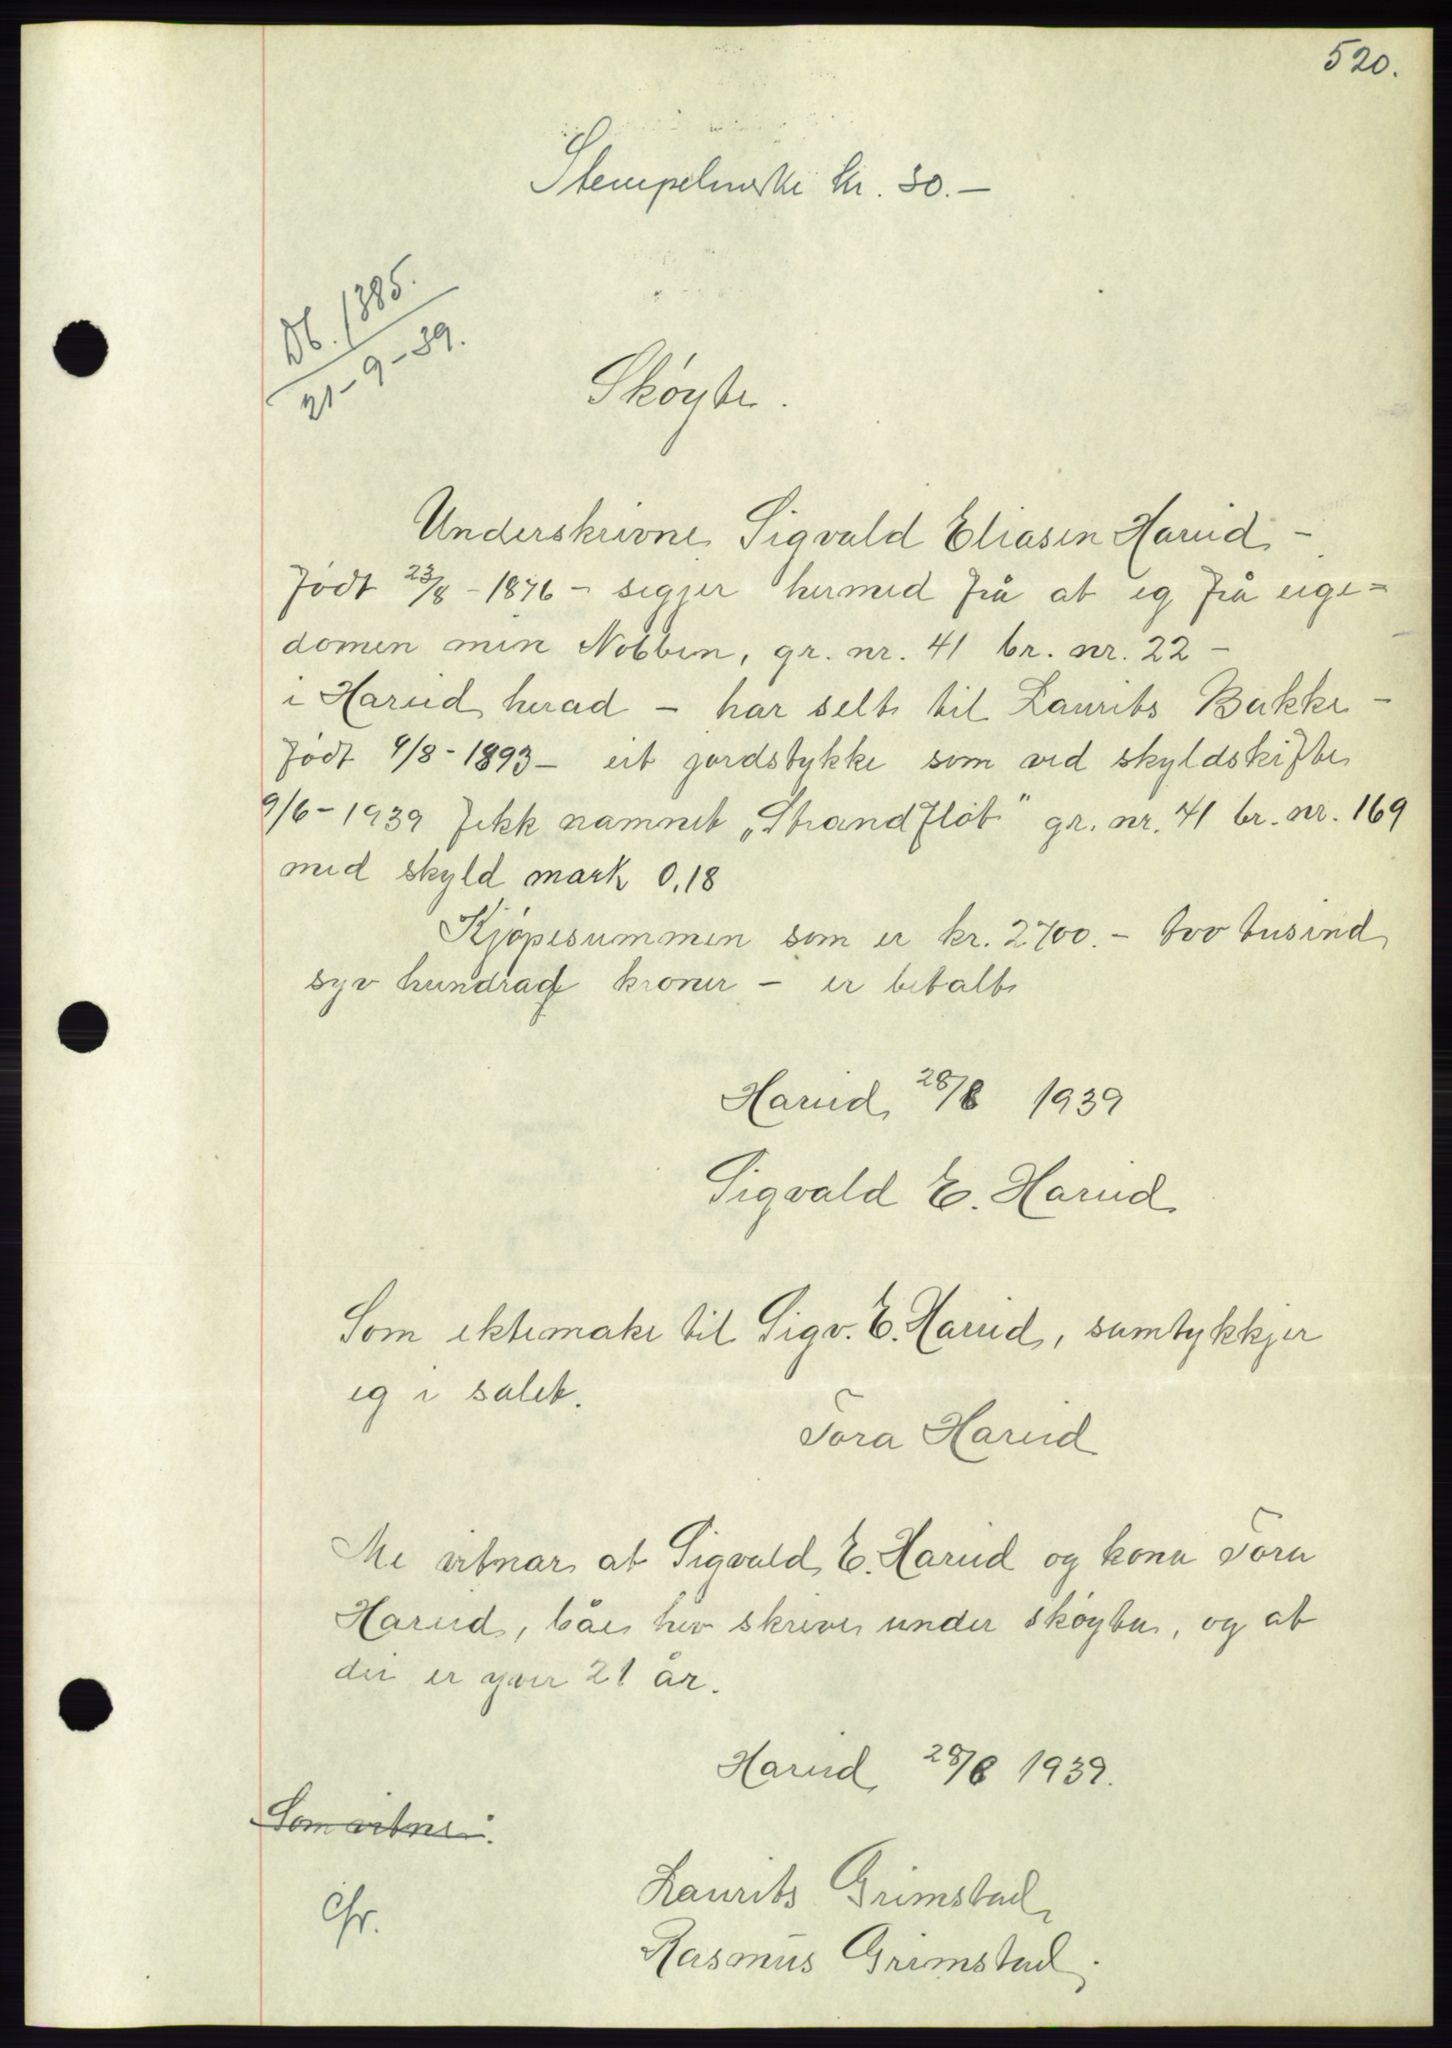 520.
Stempelmerke kr. 30.—
Db. 1385.
21-9-39.
Skøyte.
Underskrivne Sigvald Eliasen Hareid –
født 23/8 - 1876 - segjer hermed frå at eg frå eige=
domen min Nobben, gr. nr. 41 br. nr. 22 –
i Hareid herad – har selt til Laurits Bakke –
født 4/8 - 1893 – eit jordstykke som ved skyldskifte
9/6 - 1939 fekk namnet „Strandflòt" gr. nr. 41 br. nr. 169
med skyld mark 0,18
Kjøpesummen som er kr. 2700.– tvo tusind
syv hundrad kroner – er betalt
Hareid 28/8 1939
Sigvald E. Hareid
Som ektemake til Sigv. E. Hareid, samtykkjer
eg i salet.
Tora Hareid
Me vitnar at Sigvald E. Hareid og kona Tora
Hareid, båe hev skrive under skøyta, og at
dei er yver 21 år.
Hareid 28/8 1939.
Som vitne:
Cfr.
Laurits Grimstad
Rasmus Grimstad.